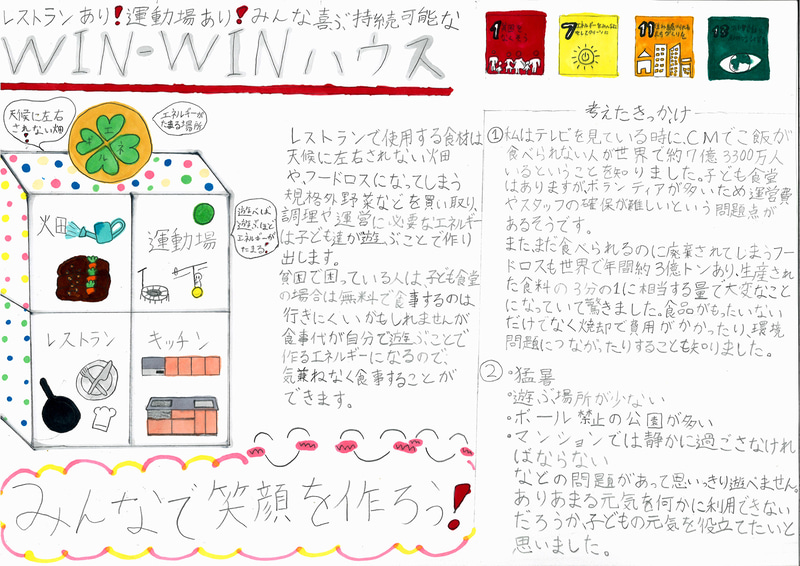 レストランあり!運動場あり!みんな喜ぶ持続可能な
WIN-WINハウス
1
7
11
13
天候に左右
されない畑
エネルギーが
たまる場所
エネルギー
遊べば
遊ぶほど
エネルギーが
たまる!
畑
運動場
レストラン
キッチン
レストランで使用する食材は
天候に左右されない畑
や、フードロスになってしまう
規格外野菜などを買い取り、
調理や運営に必要なエネルギー
は子ども達が遊ぶことで作り
出します。
貧困で困っている人は、子ども食堂
の場合は無料で食事するのは
行きにくいかもしれませんが
食事代が自分で遊ぶことで
作るエネルギーになるので、
気兼ねなく食事することが
できます。
みんなで笑顔を作ろう!
考えたきっかけ
①私はテレビを見ている時に、CMでご飯が
食べられない人が世界で約7億3300万人
いるということを知りました。子ども食堂
はありますが、ボランティアが多いため運営費
やスタッフの確保が難しいという問題点が
あるそうです。
またまだ食べられるのに廃棄されてしまうフー
ドロスも世界で年間約13億トンあり、生産され
た食料の3分の1に相当する量で大変なこと
になっていて驚きました。食品がもったいない
だけでなく焼却で費用がかかったり、環境
問題につながったりすることも知りました。
②・猛暑
・遊ぶ場所が少ない
・ボール禁止の公園が多い
・マンションでは静かに過ごさなけれ
ばならない
などの問題があって思いっきり遊べません。
ありあまる元気を何かに利用できない
だろうか、子どもの元気を役立てたいと
思いました。